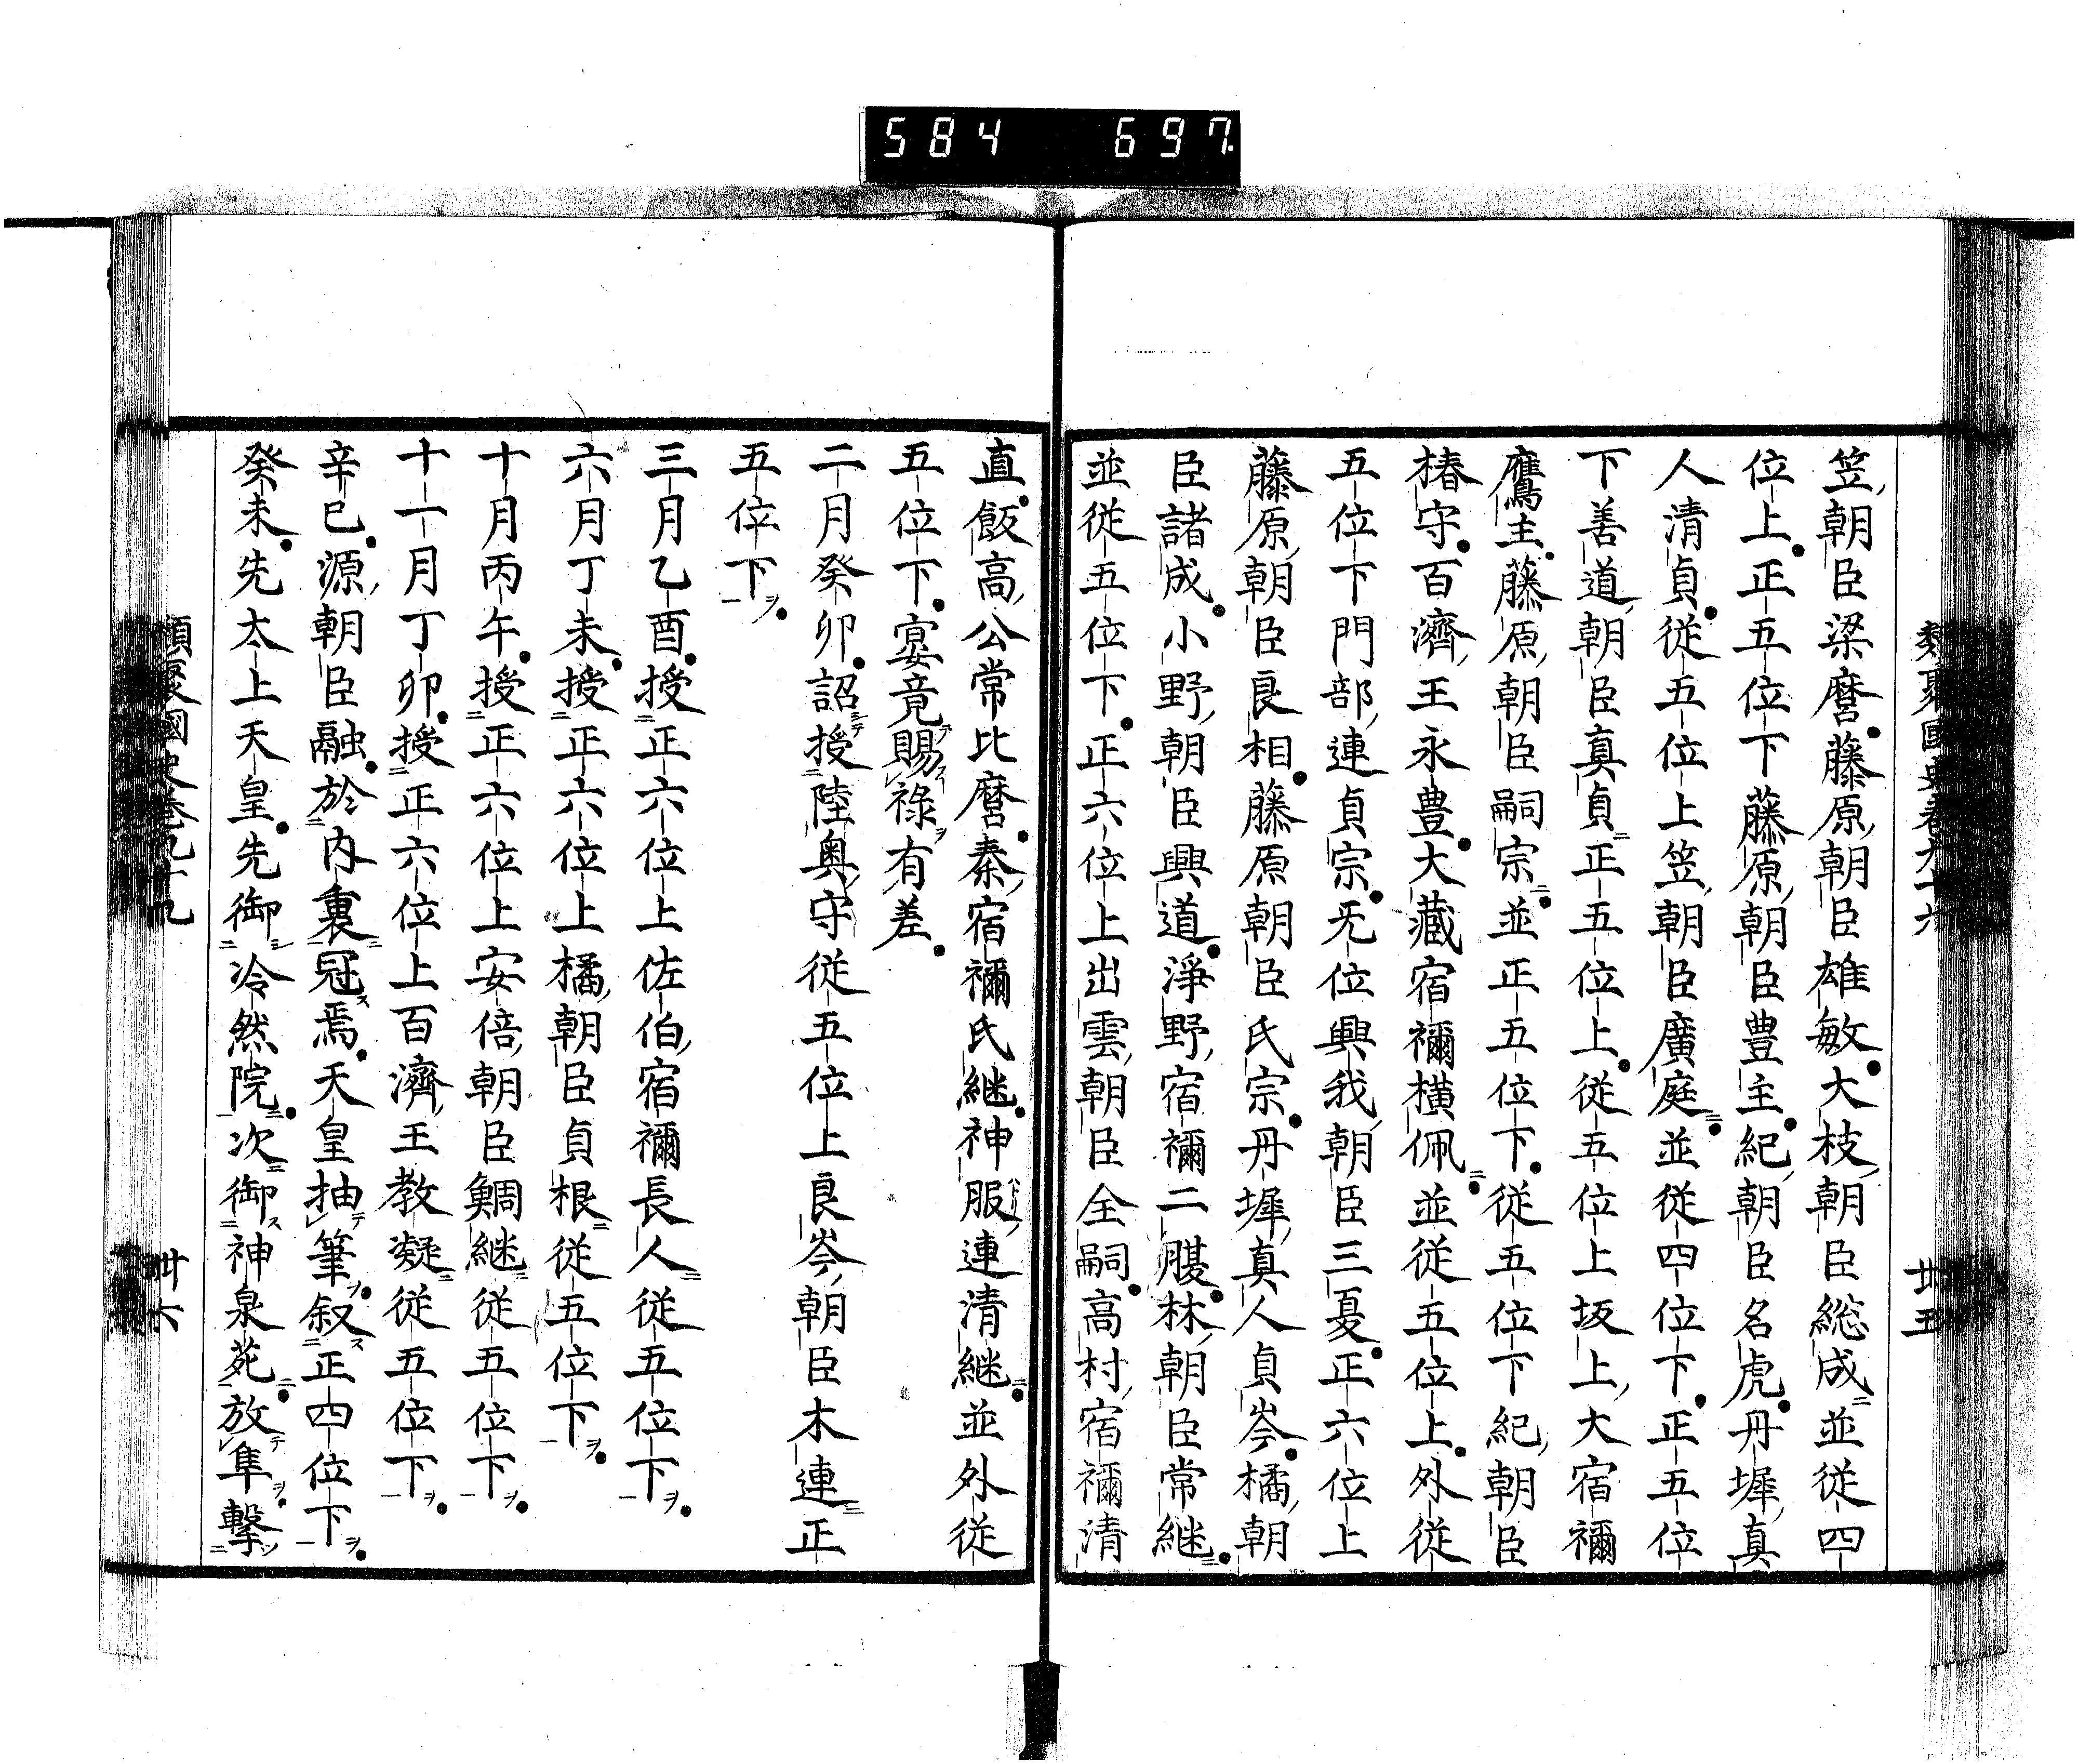 584 697
笠朝臣梁麿藤原朝臣雄敏大枝朝臣総成並従四
位上正五位下藤原朝臣豊主紀朝臣名虎丹墀真
人清貞従五位上笠朝臣廣庭並従四位下正五位
下善道朝臣真貞正五位上従五位上坂上大宿禰
鷹主藤原朝臣嗣宗並正五位下従五位下紀朝臣
椿守百濟王永豊大藏宿禰横佩並従五位上外従
五位下門部連貞宗无位興我朝臣三夏正六位上
藤原朝臣良相藤原朝臣氏宗丹墀真人貞岑橘朝
臣諸成小野朝臣興道淨野宿禰二腹林朝臣常継
並従五位下正六位上出雲朝臣全嗣高村宿禰清
廿五
直飯高公常比麿秦宿禰氏継神服連清継並外従
五位下宴竟賜禄有差
二月癸卯詔授陸奥守従五位上良岑朝臣木連正
五位下
三月乙酉授正六位上佐伯宿禰長人従五位下
六月丁未授正六位上橘朝臣貞根従五位下
十月丙午授正六位上安倍朝臣鯛継従五位下
十一月丁卯授正六位上百濟王教凝従五位下
辛巳源朝臣融於内裏冠焉天皇抽筆叙正四位下
癸未先太上天皇先御冷然院次御神泉苑放隼撃
類聚國史巻九十九
卅六